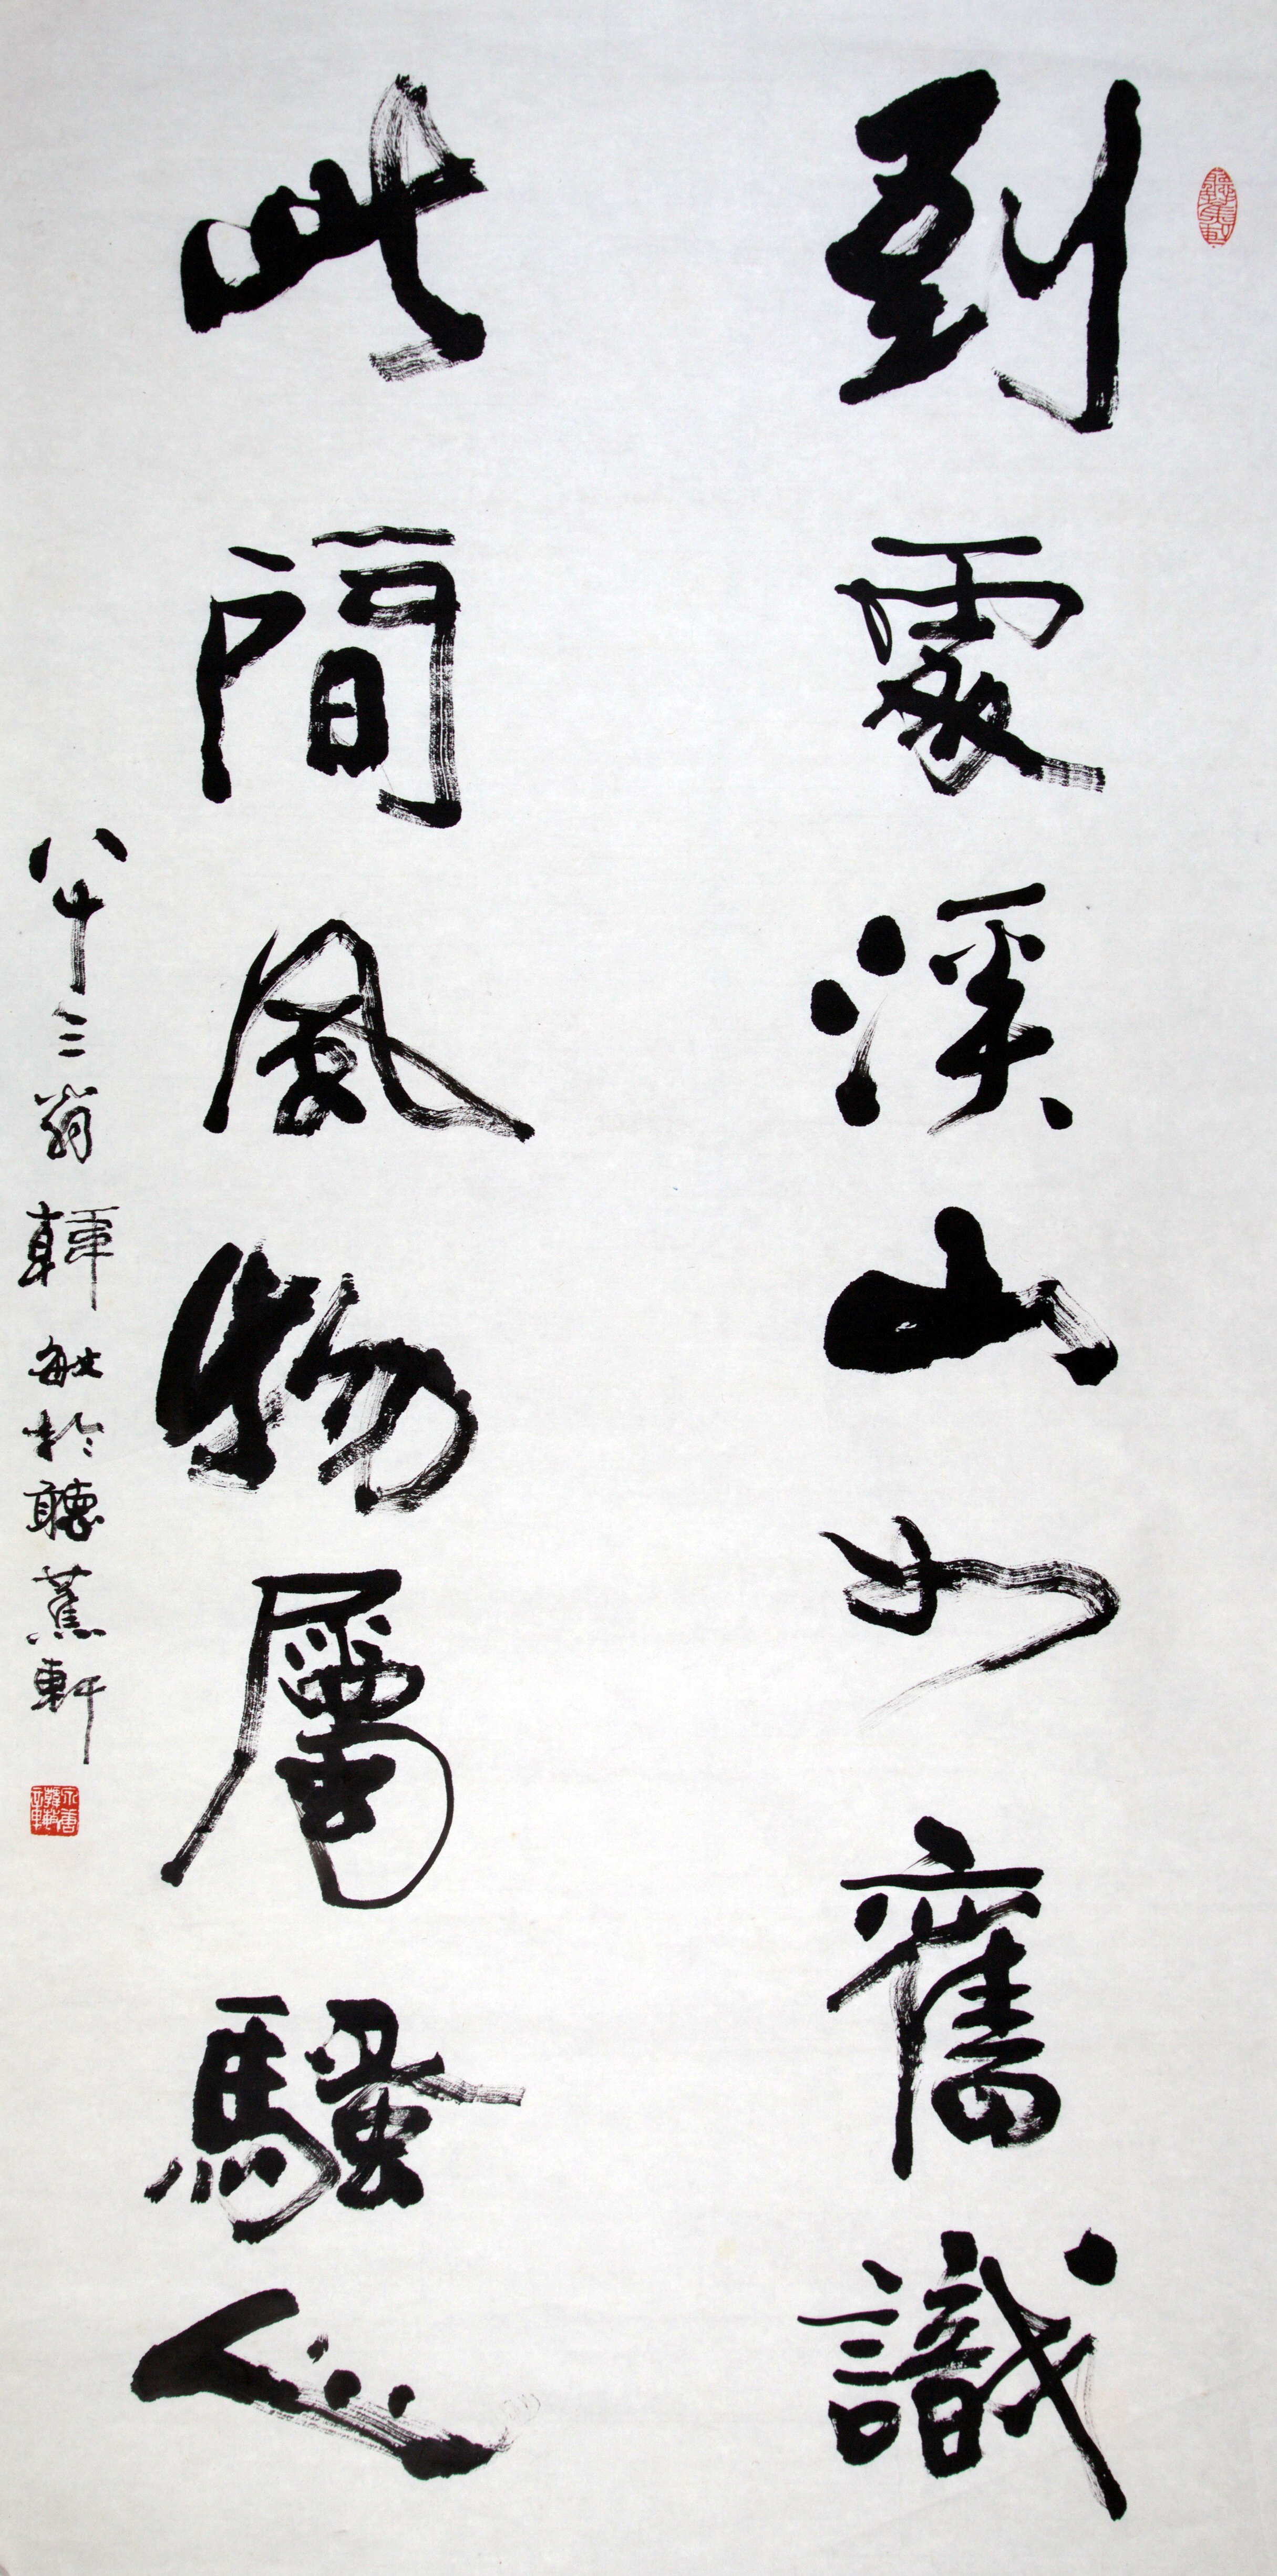 到處溪山如舊識
此間風物屬騷人
八十三翁韓敏於聽蕉軒
聽蕉軒